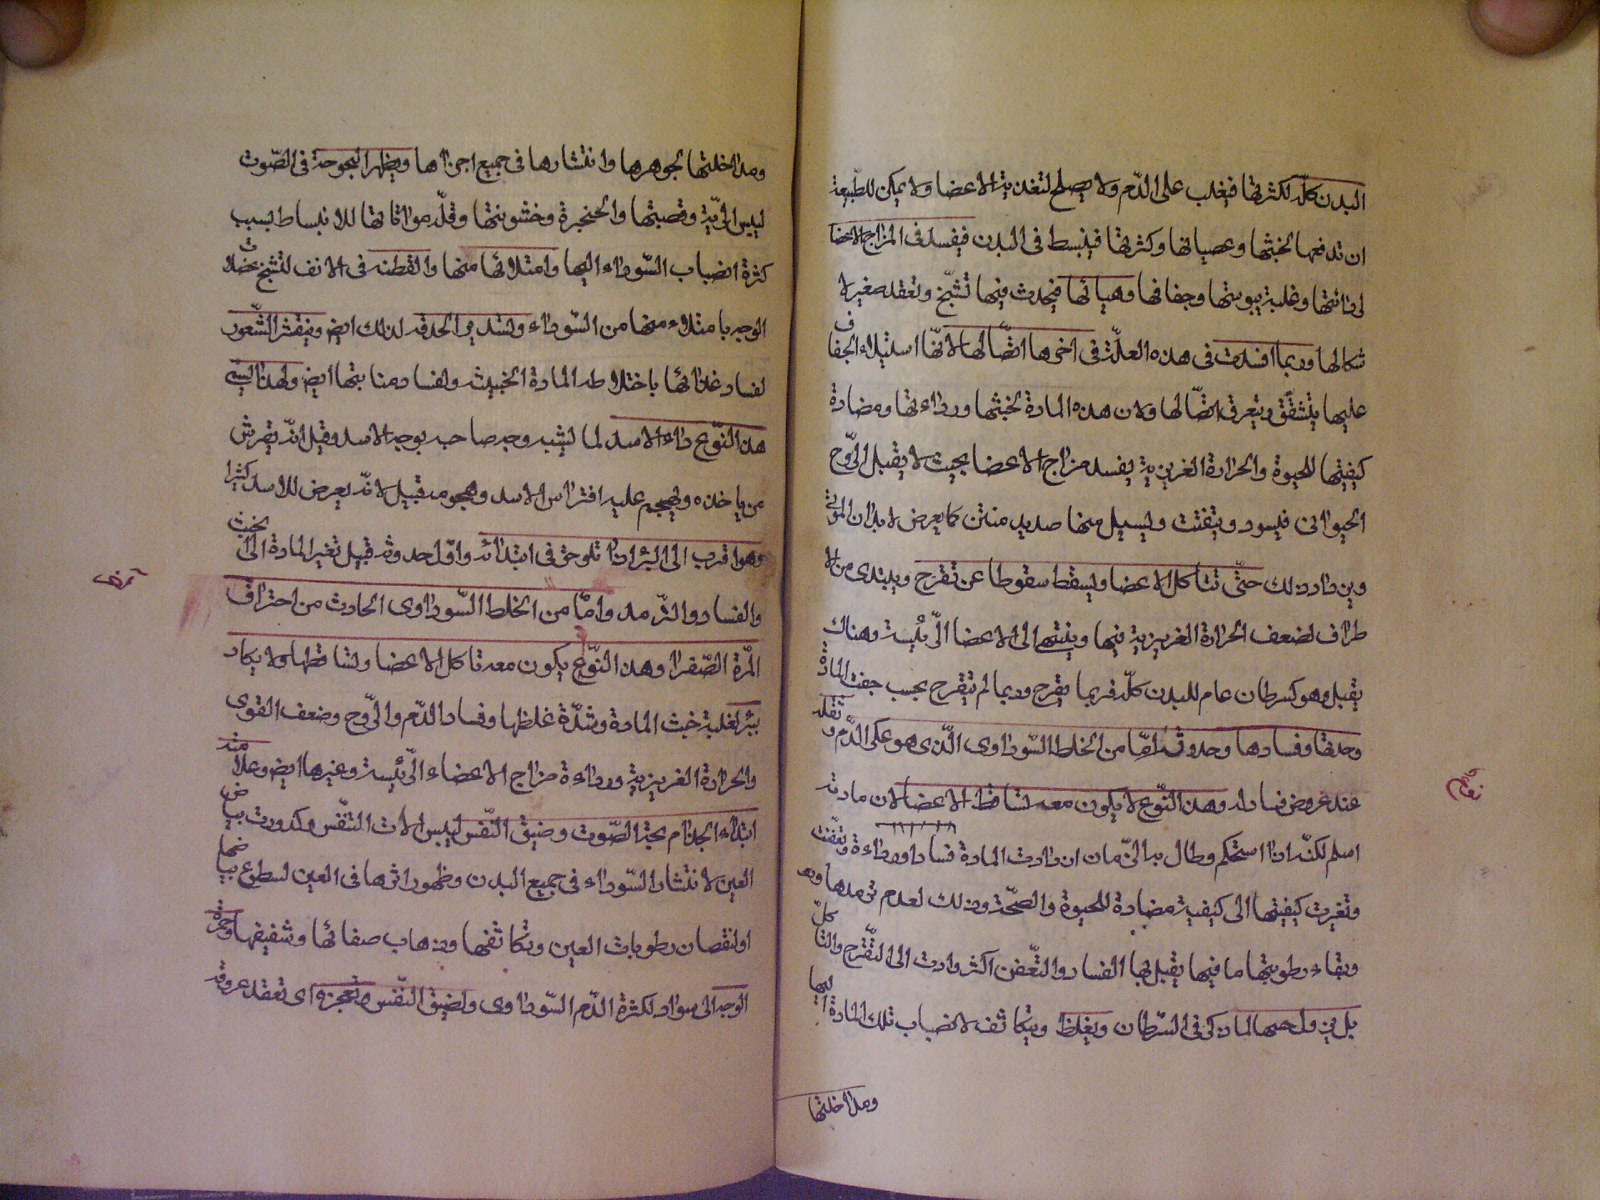 البدن كله لكثرتها فيغلب على الدّم ولا يصلح لتغذية الاعضا ولا يمكن للطّبيعة
ان تدفعها لخبثها وعصيانها وكثرتها فينبسط فى البدن فيفسد فى المزاج الاعضا
لردائتها وغلبة يبوستها وجفافها وهيأتها فيحدث فيها تشنّج وتعقد صغير لا
شكالها وربما افسدت فى هذه العلّة فى اخرها اتصّالها لانّها استيلاء الجفاف
عليها يتشقّق ويتعرق اتصّالها ولان هذه المادة لخبثها ورداءتها ومضادة
كيفيتها للحيوة والحرارة الغريزية يفسد مزاج الاعضا بحيث لا يقبل الرّوح
الحيوانى فيسود ويتفتت ويسيل منها صديد منتن كما يعرض لابدان الموتى
ويزداد ذلك حتّى تتاكل الاعضا ويسقط سقوطا عن تقرح ويبتدى من الا
طراف لضعف الحرارة الغريزية فيها وينتهى الى الاعضا الرّئيسة وهناك
يقتل وهو كسرطان عام للبدن كلّه فربما تقرح وربما لم يتقرح بحسب خفة المادة
وحدتها وفسادها وحدوثه امّا من الخلط السّوداوى الّذى هو عكر الدّم وثفله
عند عروض فساد له وهذا النّوع لا يكون معه تساقط الاعضا لان مادته
اسلم لكنّه اذا استحكم وطال به الزّمان ازدادت المادة فسادا ورداءة وتعفّنت
وتغيرت كيفيتها الى كيفية مضادة للحيوة والصحّة وذلك لعدم ترمدها
وبقاء رطوبتها ما فيها يقبل بها الفساد والتعّفن اكثر وادت الى التقّرح والتاكلّ
بل يزول حسها لما ذكر فى السّرطان ويغلظ ويتكاثف لانصباب تلك المادة اليها
ومداخلتها
ومداخلتها لجوهرها وانتشارها فى جميع اجزاءها ويظهر البحوحة فى الصّوت
ليبس الريّة وقصبتها والحنجرة وخشونتها وقلّة مواتاتها للانبساط بسبب
كثرة انصباب السّوداء اليها وامتلائها منها والفطسة فى الانف لتشنج عضلات
الوجه بامتلاء منها من السّوداء وتستدير الحدقة لذلك ايض وينتثر الشّعور
لفساد غذائها باختلاط المادة الخبيثة ولفساد منابتها ايض ولهذا يسمّى
هذا النّوع داء الاسد لما يشبه وجه صاحبه بوجه الاسد وقيل انّه يفترش
من ياخذه ويهجم عليه افتراس الاسد وهجومه قيل لانّه يعرض للاسد كثيرا
وهو اقرب الى البرء اذا تلوحق فى ابتدائه واوّل حدوثه قبل تغير المادة الى الخبث
والفساد والترّمد وامّا من الخلط السّوداوى الحادث من احتراق
المرّة الصّفرا وهذا النّوع يكون معه تاكل الاعضا وتساقطها ولا يكاد
يبرء لغلبة خبث المادة وشدّة غلظها وفساد الدّم والرّوح وضعف القوى
والحرارة الغريزية ورداءة مزاج الاعضاء الرّئيسة وغيرها ايض وعلامته
ابتداء الجذام بحة الصّوت وضيق النّفس ليبس الات التنّفس وكدورت بياض
العين لانتشار السّوداء فى جميع البدن وظهور اثرها فى العين لسطوع بياضها
او لنقصان رطوبات العين وتكاثفها وذهاب صفائها وشفيفها وحمرة
الوجه الى سواد لكثرة الدّم السّوداوى ولضيق النّفس وتعجزه اى تعقد عروقه